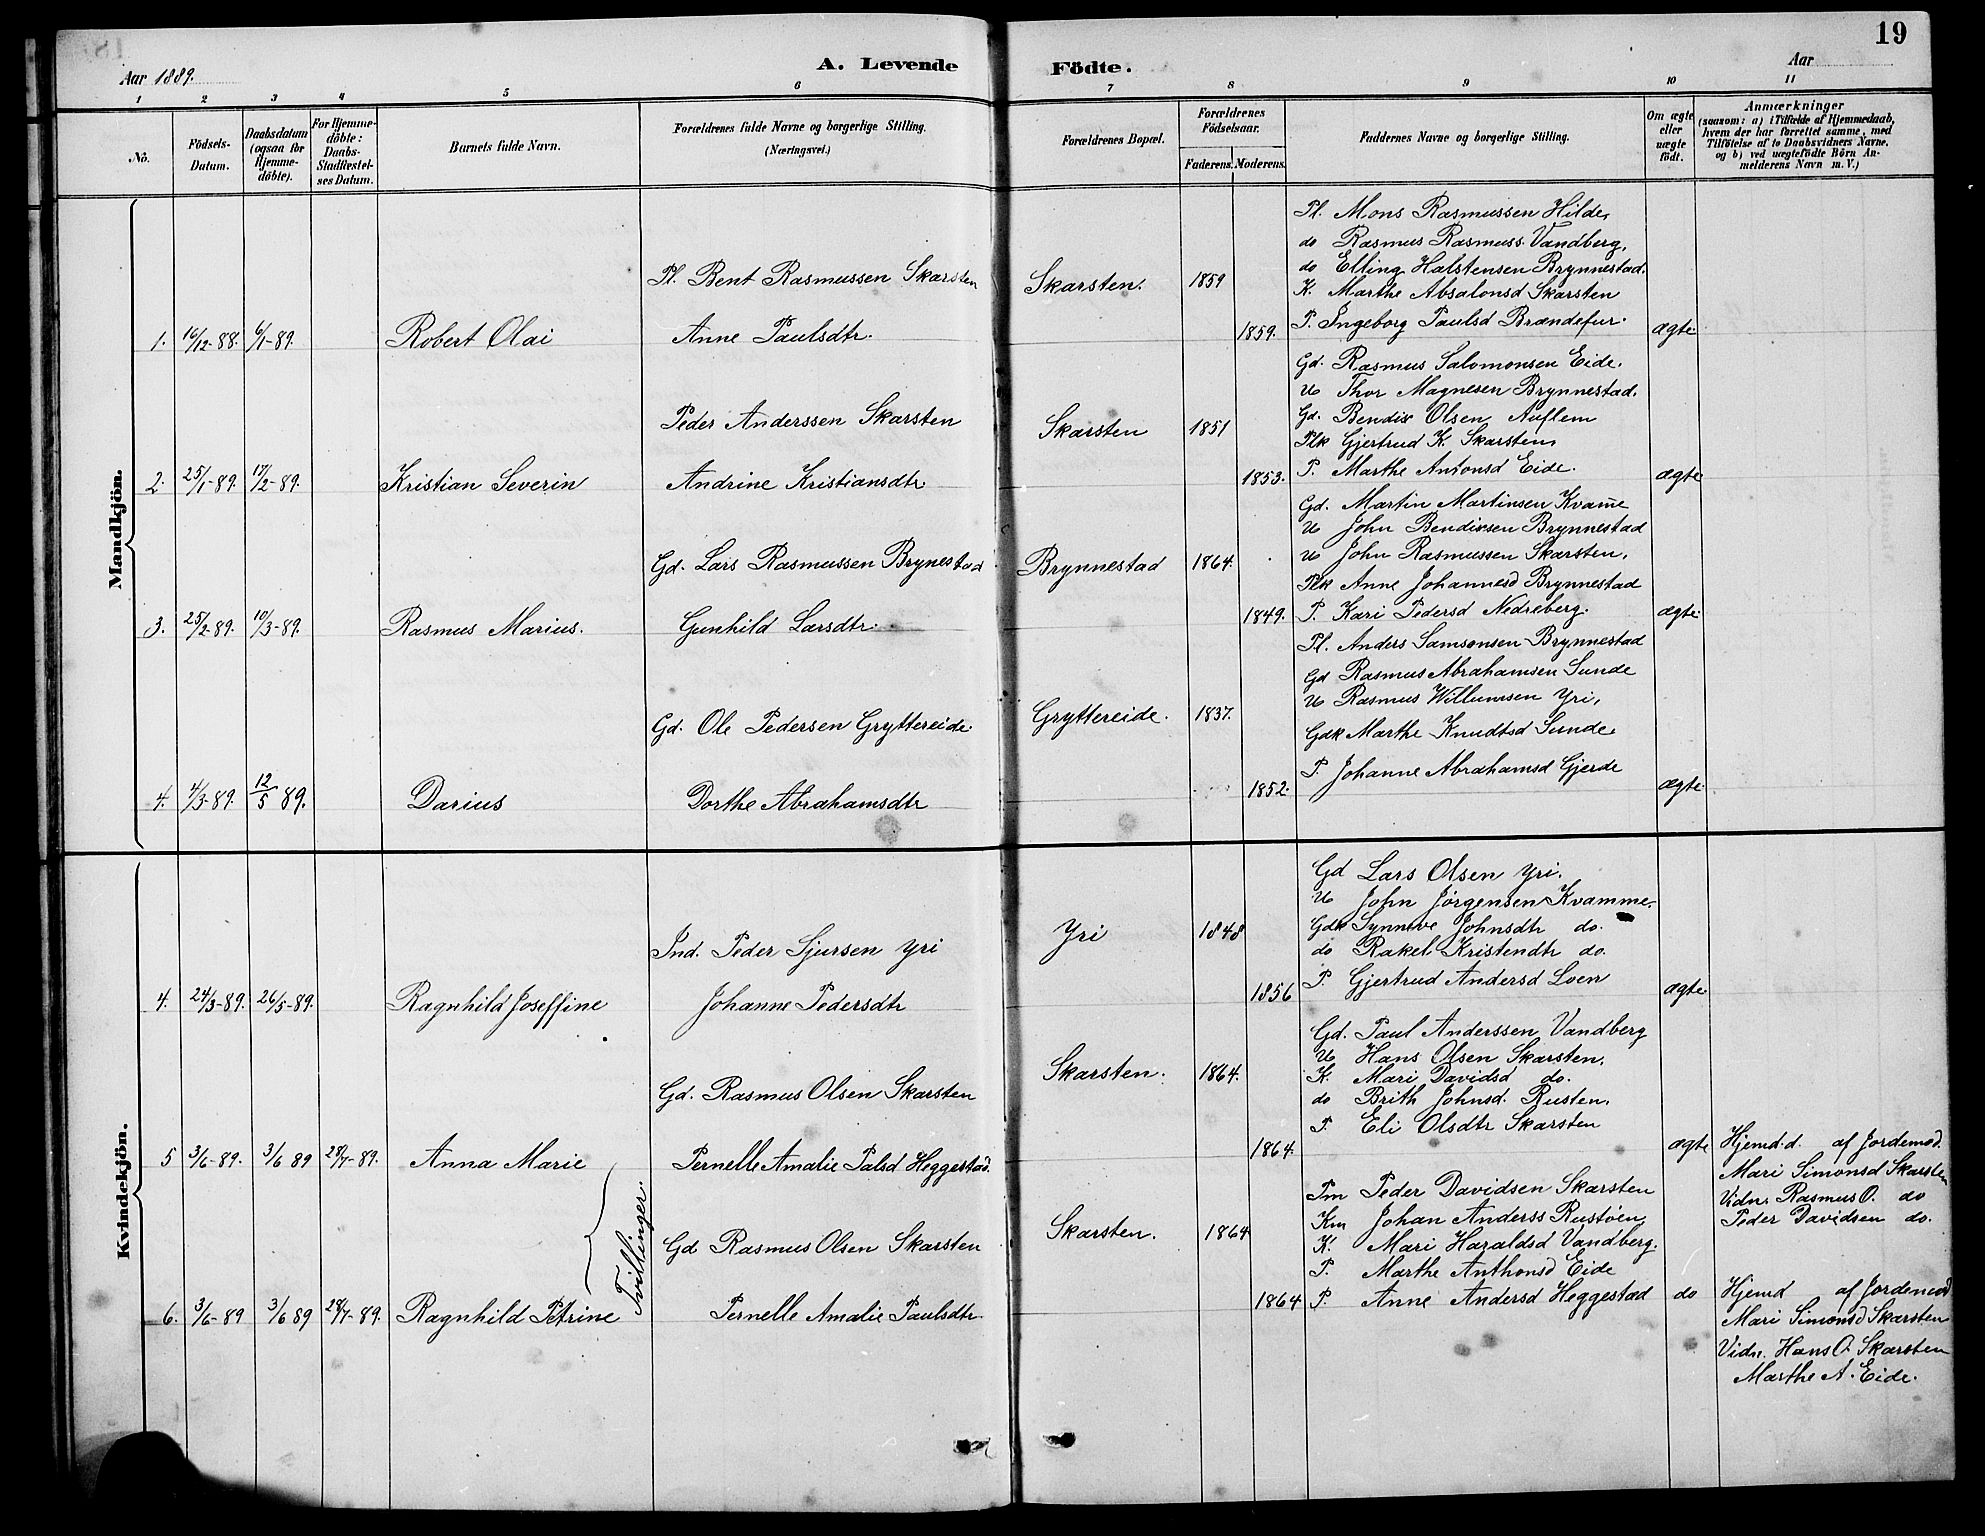 19
Aar 1889. A. Levende Födte. Aar
1 2 3 4 5 6 7 8 9 10 11
No.
Födsels-Datum.
Daabsdatum (ogsaa for Hjemme-döbte).
For Hjemme-döbte: Daabs-Stadfæstel-ses Datum.
Barnets fulde Navn.
Forældrenes fulde Navne og borgerlige Stilling.
(Næringsvei.)
Forældrenes Bopæl.
Forældrenes Födselsaar.
Faderens. Moderens.
Faddernes Navne og borgerlige Stilling.
Om ægte eller uægte födt.
Anmærkninger
(saasom: a) i Tilfælde af Hjemmedaab,
hvem der har forrettet samme, med
Tilföielse af to Daabsvidners Navne,
og b) ved uægtefödte Börn An-
melderens Navn m. V.)
Mandkjön.
Pl. Mons Rasmussen Hilde,
do Rasmus Rasmuss. Vandberg,
do Elling Halstensen Brynnestad.
Pl. Bent Rasmussen Skarsten Skarsten. 1859
K. Marthe Absalonsd Skarsten
1. 16/12-88. 6/1-89. Robert Olai Anne Paulsdtr. 1859. P. Ingeborg Paulsd Brændefur. ægte
Gd. Rasmus Salomonsen Eide.
U Thor Magnesen Brynnestad.
Peder Anderssen Skarsten Skarsten 1851 Gd. Bendix Olsen Auflem
Plk Gjertrud K. Skarsten,
2. 25/1-89. 17/2-89. Kristian Severin Andrine Kristiansdtr. 1853. P. Marthe Antonsd Eide. ægte
Gd. Martin Martinsen Kvam̄e
U John Bendixsen Brynnestad
Gd. Lars Rasmussen Brynestad Brynnestad 1864. U John Rasmussen Skarsten,
Plk Anne Johannesd Brynnestad
3. 25/2-89. 10/3-89. Rasmus Marius. Gunhild Larsdtr. 1849. P. Kari Pedersd Nedreberg. ægte
Pl. Anders Samsonsen Brynnestad
Gd Rasmus Abrahamsen Sunde
U Rasmus Willumsen Yri,
Gd. Ole Pedersen Gryttereide. Gryttereide. 1837. Gdk Marthe Knudtsd Sunde.
4. 4/3-89. 12/5 89. Darius Dorthe Abrahamsdtr 1852. P. Johanne Abrahamsd Gjerde ægte
Kvindekjön.
Gd Lars Olsen Yri.
U John Jørgensen Kvamme.
Ind. Peder Sjursen Yri Yri 1848 Gdk Synneve Johnsdtr do.
do Rakel Kristendtr do.
4. 24/3-89. 26/5-89. Ragnhild Joseffine Johanne Pedersdtr 1856 P. Gjertrud Andersd Loen ægte
Gd. Paul Anderssen Vandberg
U Hans Olsen Skarsten.
Gd. Rasmus Olsen Skarsten Skarsten. 1864. K. Mari Davidsd do.
do Brith Johnsd. Rusten.
P. Eli Olsdtr Skarsten
5 3/6-89. 3/6 89 28/7-89. Anna Marie Pernelle Amalie Palsd Heggestad. 1864. ægte Hjemd.d. af Jordemod.
Mari Simonsd Skarsten
Vidn. Rasmus O. do
Peder Davidsen do.
Tvillinger.
Pm Peder Davidsen Skarsten
Km Johan Anderss Rustøen
Gd Rasmus Olsen Skarsten Skarsten. 1864 K. Mari Haraldsd Vandberg.
P. Marthe Anthonsd Eide
6. 3/6-89 3/6 89 28/7-89. Ragnhild Petrine Pernelle Amalie Paulsdtr. 1864 P. Anne Andersd Heggestad do Hjemd af Jordemod
Mari Simonsd Skarsten
Vidn. Hans O. Skarsten
Marthe A. Eide.